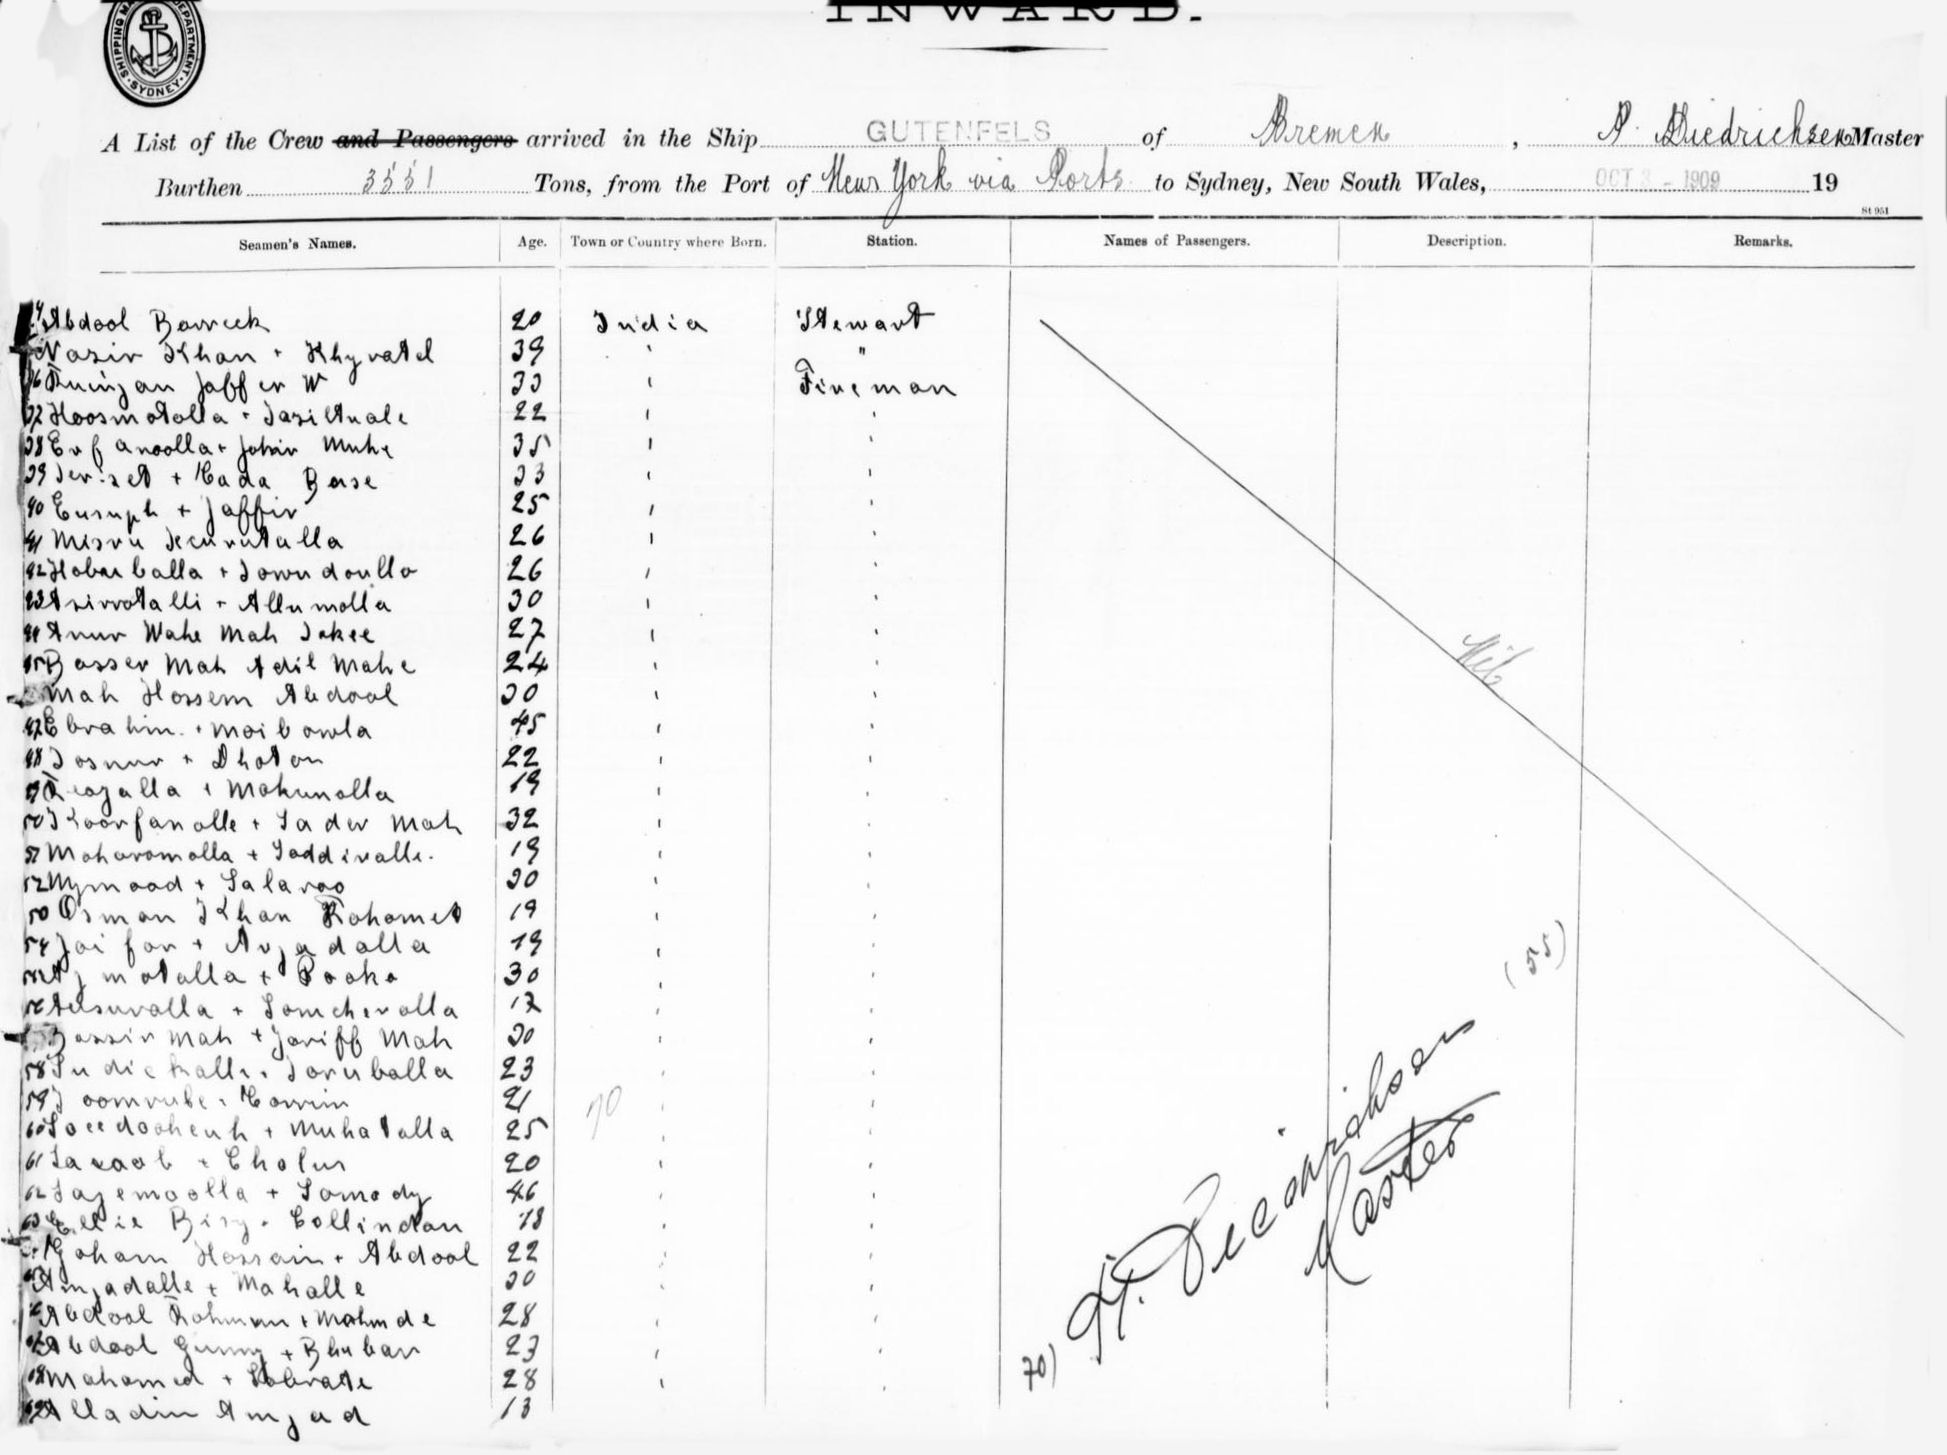 INWARD.
SHIPPING MA DEPARTMENT. SYDNEY
A List of the Crew and Passengers arrived in the Ship GUTENFELS of Bremen, Diedrichsen Master
Burthen 3551 Tons, from the Port of New York via Ports to Sydney, New South Wales, OCT 3 - 1909 19
St 951
Seamen's Names. Age. Town or Country where Born. Station. Names of Passengers. Description. Remarks.
Abdool Barreek 20 India Stewart
Nasir Khan + Khyratel 39 ' "
36 Jaffer W 33 ' Fireman
37 Hoosmotolla + 22 ' '
38 Erfanoolla + Johir Muhe 35 ' '
39 + Cada Base 33 ' '
40 Eusuph + Jaffir 25 ' '
41 Misru 26 ' '
42 + 26 ' '
43 Asirrotalli + Allumolla 30 ' '
44 Anur Wahe Mah Jokee 27 ' '
45 Basser Mah Adil Mahe 24 ' '
Mah Hossem Abdool 30 ' '
47 Ebrahim + Moibowla 45 ' '
48 Josnur + Dhoton 22 ' '
49 + Mokumolla 19 ' '
50 + Sader Mah 32 ' '
51 Moharomolla + Soddiralle. 19 ' '
52 Mymood + Salaroo 30 ' '
Nil
53 Osman Khan Rohomet 19 ' '
54 Joifar + Arjadolla 19 ' '
55 Ajmotolla + Pooka 30 ' '
(55)
56 + Somcherolla 17 ' '
Bassir Mah + Joriff Mah 30 ' '
58 Joruballa 23 ' '
59 21 ' '
70
60 + Muhatalla 25 ' '
61 + Cholur 20 ' '
62 Sajemoolla + Somedy 46 ' '
63 Collindan 18 ' '
Goham Hossain + Abdool 22 ' '
65 Amjadalle + Mahalle 30 ' '
Abdool Rohman + Mahmde 28 ' '
Abdool Gunny + Bhubar 23 ' '
68 Mohomed + 28 ' '
69 Alladin Amjad 13
70) H. Diedrichsen
Master